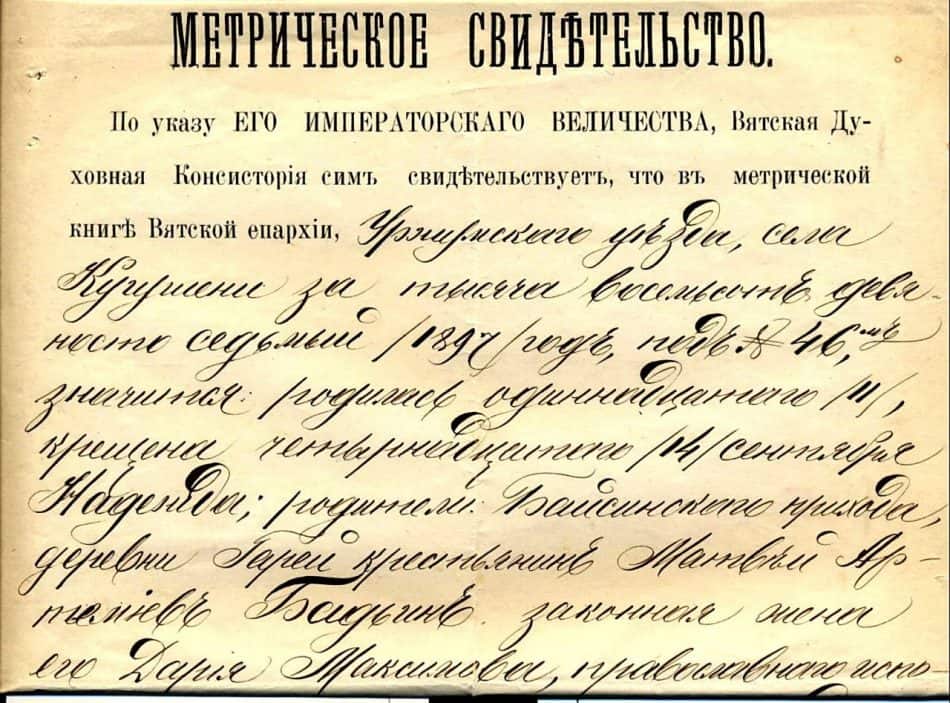 МЕТРИЧЕСКОЕ СВИДѢТЕЛЬСТВО.
По указу ЕГО ИМПЕРАТОРСКАГО ВЕЛИЧЕСТВА, Вятская Ду-
ховная Консисторія симъ свидѣтельствуетъ, что въ метрической
книгѣ Вятской епархіи, Уржумскаго уѣзда, села
Кугушени за тысяча восемьсотъ девя-
носто седьмый /1897/ годъ, подъ № 46,мъ
значится: родилась одиннадцатаго /11/,
крещена четырнадцатаго /14/ сентября
Надежда; родители: Байсинскаго прихода,
деревни Гарей крестьянинъ Матвѣй Ар-
теміевъ Бадьинъ законная жена
его Дарія Максимова, православнаго испо-